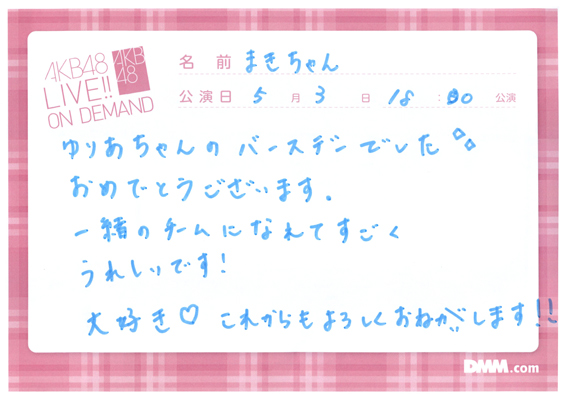 AKB48
LIVE!!
ON DEMAND
AKB
48
名前 まきちゃん
公演日 5月3日 18:00 公演
ゆりあちゃんのバースデンでした
おめでとうございます。
一緒のチームになれてすごく
うれしいです!
大好き♡ これからもよろしくおねがいします!!
DMM.com